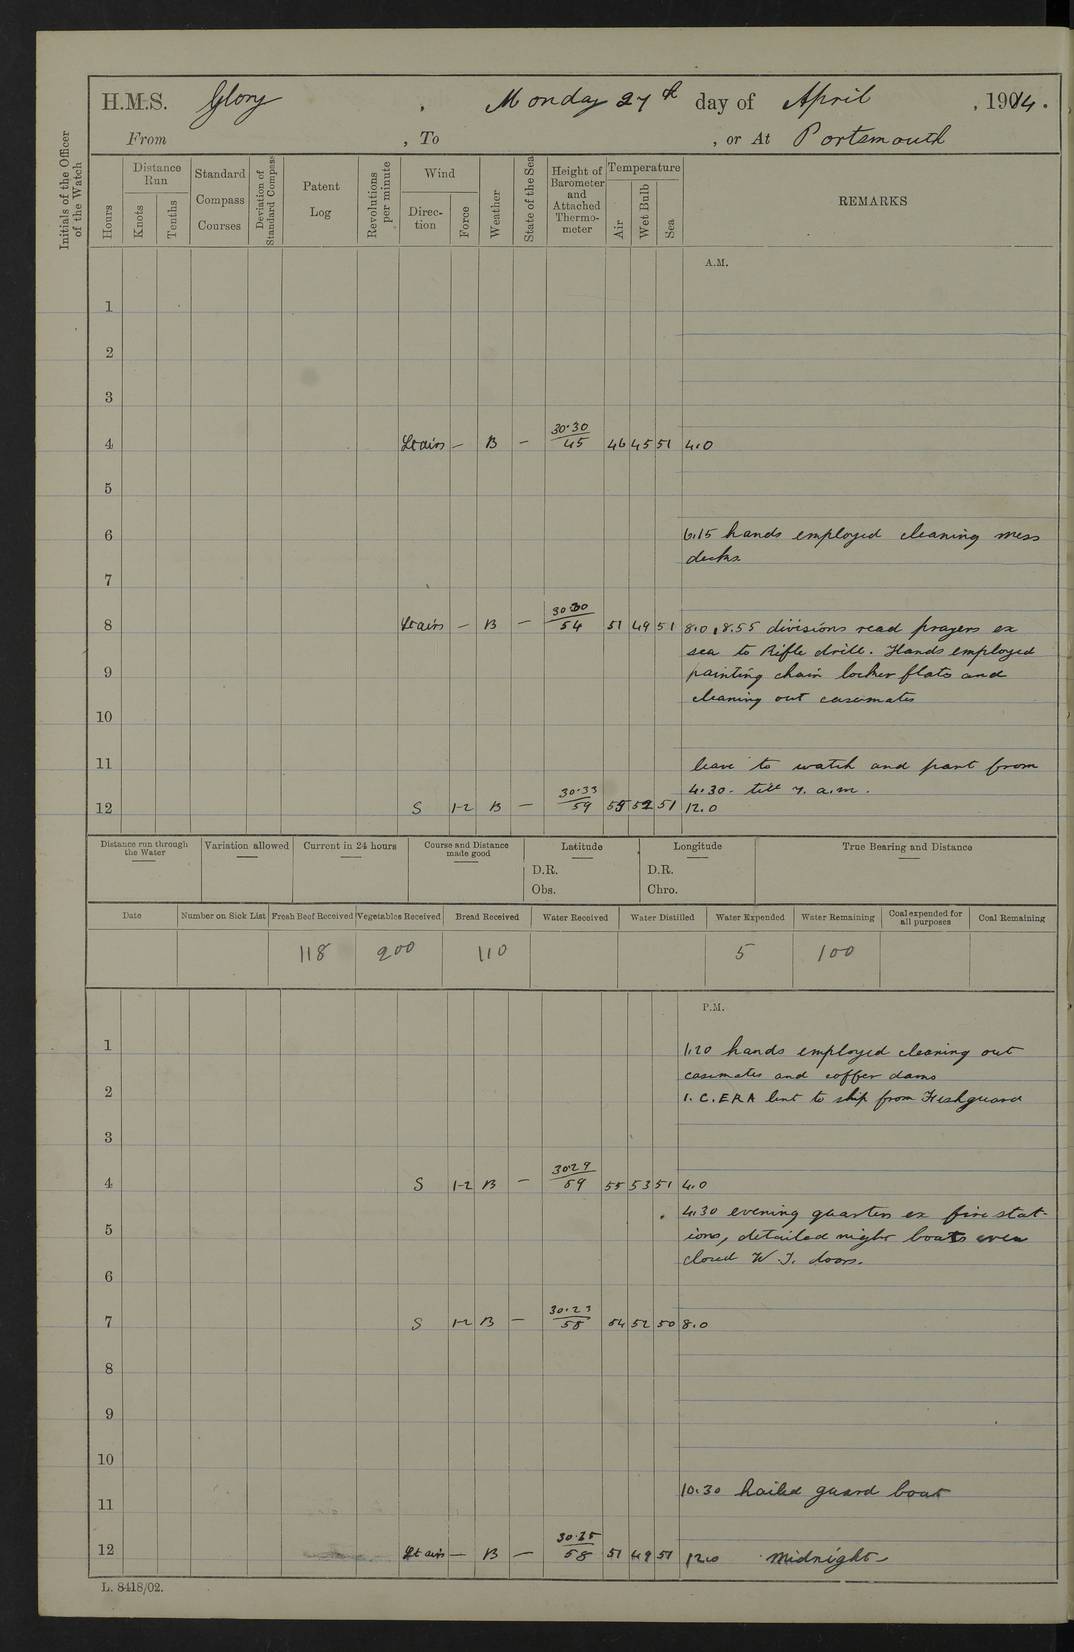 H.M.S. Glory , Monday 27th day of April , 1914.
From , To , or At Portsmouth
Initials of the Officer of the Watch
Hours
Distance Run
Knots
Tenths
Standard Compass Courses
Deviation of Standard Compass
Patent Log
Revolutions per minute
Wind
Direction
Force
Weather
State of the Sea
Height of Barometer and Attached Thermometer
Temperature
Air
Wet Bulb
Sea
REMARKS
A.M.
1
2
3
4 Lt airs — B — 30.30/45 46 45 51 4.0
5
6 6.15 hands employed cleaning mess
decks
7
8 Lt airs — B — 30.30/54 51 49 51 8.0, 8.55 divisions read prayers ex
sea to Rifle drill. Hands employed
9 painting chain locker flats and
cleaning out casemates
10
11 leave to watch and part from
4.30. till 7. a.m.
12 S 1-2 B — 30.33/59 55 52 51 12.0
Distance run through the Water
Variation allowed
Current in 24 hours
Course and Distance made good
Latitude
D.R.
Obs.
Longitude
D.R.
Chro.
True Bearing and Distance
Date Number on Sick List Fresh Beef Received Vegetables Received Bread Received Water Received Water Distilled Water Expended Water Remaining Coal expended for all purposes Coal Remaining
118 200 110 5 100
P.M.
1 1.20 hands employed cleaning out
casemates and coffer dams
2 1. C.ERA lent to ship from Fishguard
3
4 S 1-2 B — 30.29/59 55 53 51 4.0
4.30 evening quarters ex fire stat-
5 ions, detailed night boats crew
closed W.T. doors.
6
7 S 1-2 B — 30.23/58 54 52 50 8.0
8
9
10
10.30 hailed guard boat
11
12 Lt airs — B — 30.25/58 51 49 51 12.0 Midnight
L. 8418/02.